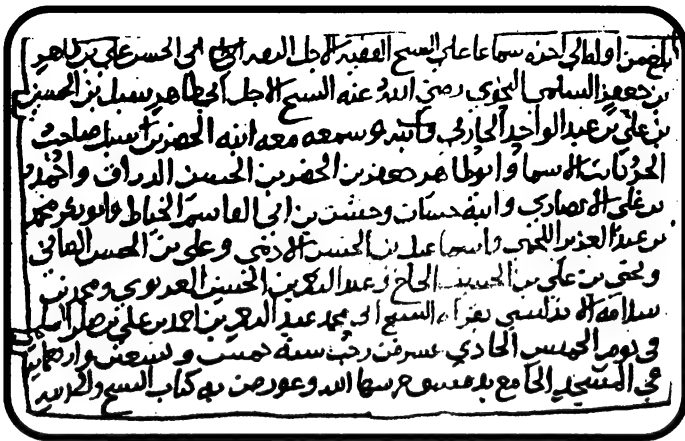 بلغ من اوله الى اخره سماعا على الشيخ الفقيه الاجل ابي الحسن علي بن طاهر
بن جعفر السلمي النحوي رضي الله عنه الشيخ الاجل ابي طاهر سبيل بن الحسين
بن علي بن عبد الواحد الحارثي وابنه وسمعه معه ابنه الخضر بن سبيل صاحب
الاسما وابو طاهر جعفر بن الخضر بن الحسن واحمد
بن علي الانصاري وابنه حسان بن ابي القاسم الخياط وابو محمد
بن عبد العزيز اللخمي واسماعيل بن الحسن وعلي بن الحسن
ويحيى بن علي بن الحسين الحاج وعبد بن الحسين ومحمد بن
سلامة الاندلسي بقراه الشيخ ابي محمد عبد بن احمد بن علي بن صابر السلمي
في يوم الخميس الحادي عشر من رجب سنة خمس وتسعين واربعمايه
في المسجد الجامع بدمشق حرسها الله وعورض به كتاب الشيخ